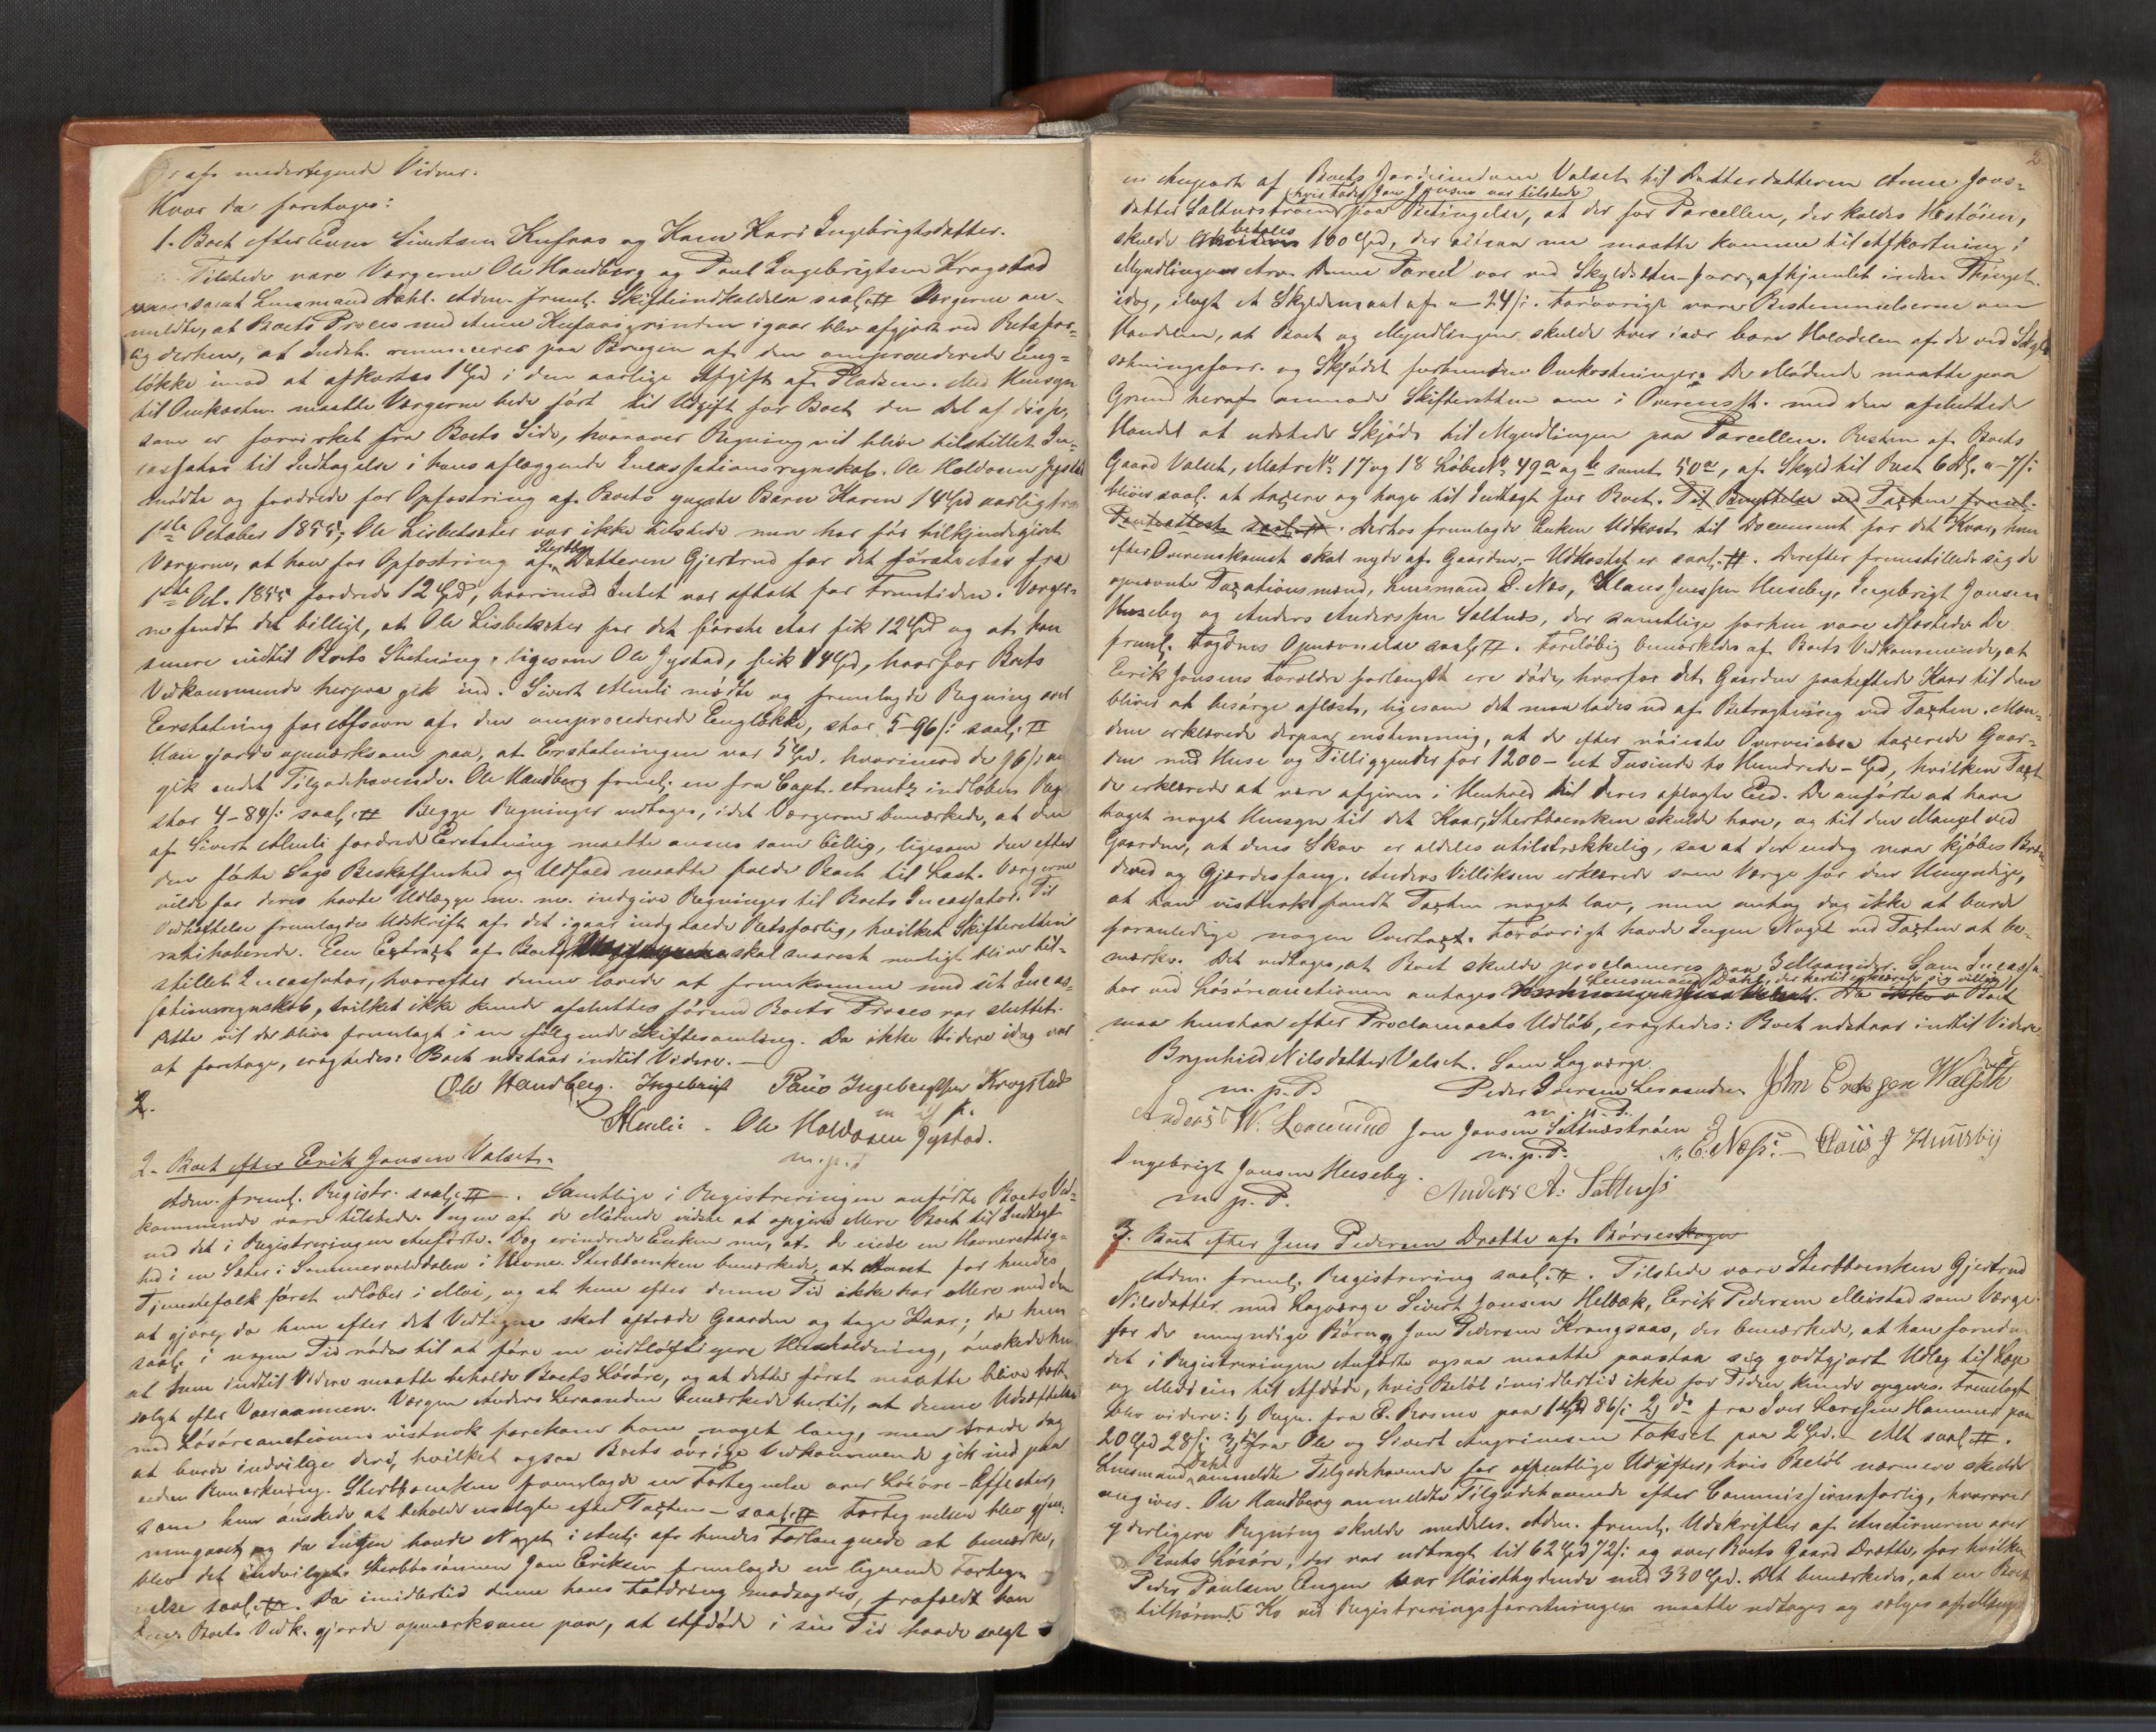 af undertegnede Vidner.
Hvor da foretoges:
1. Boet efter Sivertsen Kufaas og Kone Kari Ingebrigtsdatter.
Tilstede vare Værgerne Ole Handberg og Paul Ingebrigtsen Krogstad
samt Lensmand Dahl. Adm. freml. Skifteindkaldelse saal. # Værgerne an-
meldte, at Boets Proces med Anne Kufaasgrinden igaar blev afgjort ved Retsfor-
lig derhen, at Indst. renunceres paa Brugen af den omprocederede Eng-
løkke imod at afkortes 1 Spd i den aarlige Afgift af Pladsen. Med Hensyn
til Omkostn. maatte Værgerne bede ført til Udgift for Boet den Del af disse,
som er forvirket fra Boets Side, hvorover Regning vil blive tilstillet In-
cassator til Indtagelse i hans aflæggende Incassationsregnskab. Ole Haldosen Gystad
mødte og fordrede for Opfostring af Boets yngste Barn Karen 14 Spd aarlig fra
1ste October 1855; Ole Lisbetsæter var ikke tilstede men har før tilkjendegivet
Værgerne, at han for Opfostring af Sterbbo Datteren Gjertrud for det første Aar fra
1ste Oct. 1855 fordrede 12 Spd, hvorimod Intet var aftalt for Fremtiden. Værger-
ne fandt det billigt, at Ole Lisbetsæter for det første Aar fik 12 Spd og at han
senere indtil Boets Slutning, ligesom Ole Gystad, fik 14 Spd, hvorfor Boets
Vedkommende herpaa gik ind. Sivert Mæli mødte og fremlagde Regning over
Erstatning for Afsavn af den omprocederede Engløkke, stor 5-96 ß: saal. #
Han gjorde opmærksom paa, at Erstatningen var 5 Spd, hvorimod de 96 ß an-
gik andet Tilgodehavende. Ole Handberg freml. en fra Capt. Arntz indløben Reg.
stor 4-84 ß: saal. # Begge Regninger vedtages, idet Værgerne bemærkede, at den
af Sivert Mæli fordrede Erstatning maatte ansees som billig, ligesom den efter
den førte Sags Beskaffenhed og Udfald maatte falde Boet til Last. Værgerne
vilde for deres havte Udlægge m. m. indgive Regninger til Boets Incassator. Til
Vedhæftelse fremlagdes Udskrift af det igaar indgaaede Retsforlig, hvilket Skifteretten
ratihaberede. Een Extract af Boets skal snarest muligt blive til-
stillet Incassator, hvorefter denne lovede at fremkomme med sit Incas-
sationsregnskab, hvilket ikke kunde afsluttes førend Boets Proces var sluttet.
Dette vil da blive fremlagt i en følgende Skiftesamling. Da ikke Videre idag var
at foretage, eragtedes: Boet udstaar indtil Videre.
Ole Handberg. Ingebrigt Paul Ingebrigtsen Krogstad
Mæli. Ole Haldosen Gystad.
m. p. P.
2.
2. Boet efter Erik Jonsen Valset.
Adm. freml. Registr. saal. #. Samtlige i Registreringen anførte Boets Ved-
kommende vare tilstede. Ingen af de Mødende vidste at opgive Mere Boet til Indtægt
end det i Registreringen Anførte. Dog erindrede Enken nu, at de eiede en Havnerettig-
hed i en Sæter i Sommervolddalen i Hevne. Sterbboenken bemærkede, at Aaret for hendes
Tjenestefolk først udløber i Mai, og at hun efter denne Tid ikke har Mere med dem
at gjøre, da hun efter det Vedtagne skal aftræde Gaarden og tage Kaar; da hun
saal. i nogen Tid nødes til at føre en vidtløftigere Huusholdning, ønskede hun
at hun indtil Videre maatte beholde Boets Løsøre, og at dette først maatte blive bort-
solgt efter Vaaraannen. Værgen Anders Leraanden bemærkede hertil, at denne Udsættelse
med Løsøreauctionen vistnok forekom ham noget lang, men troede dog
at burde indvilge deri, hvilket ogsaa Boets øvrige Vedkommende gik ind paa
uden Bemærkning. Sterbboenken fremlagde en Fortegnelse over Løsøre-Effecter,
som hun ønskede at beholde usolgte efter Taxten - saal. # Fortegnelsen blev gjen-
nemgaaet, og da Ingen havde Noget i Anl. af hendes Forlangende at bemærke,
blev det indvilget. Sterbbosønnen Jon Eriksen fremlagde en lignende Forteg-
nelse saal. #. Da imidlertid denne hans Fordring modsagdes, frafaldt han
den. Boets Vedk. gjorde opmærksom paa, at Afdøde i sin Tid havde solgt
2
en Anpart af Boets Jordeiendom Valset til Datterdatteren Anne Jons-
datter Saltnesstrøen (hvis Fader Jon Jonsen var tilstede) paa Betingelse, at der for Parcellen, der kaldes Hestøien,
skulde betales 100 Spd, der altsaa nu maatte komme til Afkortning i
Myndlingens Arv. Denne Parcel var ved Skylddelin-Forr, afhjemlet inden Thinget
idag, ilagt et Skyldmaal af - 24 ß. Forøvrigt vare Bestemmelserne om
Handelen, at Boet og Myndlingen skulde hver især bære Halvdelen af de ved Skyld-
sætningsforr. og Skjødet forbundne Omkostninger. De Mødende maatte paa
Grund heraf anmode Skifteretten om i Overensst. med den afsluttede
Handel at udstede Skjøde til Myndlingen paa Parcellen. Resten af Boets
Gaard Valset, Matr. No 17 og 18 Løbe No 49 a og b samt 50 a, af Skyld til Rest 6 D. - 7 ß:
bliver saal. at taxere og tages til Indtægt for Boet. Til Benyttelse ved Taxten freml.
Panteattest saal. #. Derhos fremlagde Enken Udkast til Document for det Kaar, hun
efter Overenskomst skal nyde af Gaarden, - Udkastet er saal. #. Derefter fremstillede sig de
opnævnte Taxationsmænd, Lensmand E. Næs, Klaus Jenssen Huseby, Ingebrigt Jonsen
Huseby og Anders Anderssen Saltnæs, der samtlige forhen vare edfæstede. De
freml. Fogdens Opnævnelse saal. #. Foreløbig bemærkedes af Boets Vedkommende, at
Erik Jonsens Forældre forlængst ere døde, hvorfor det Gaarden paaheftede Kaar til dem
bliver at besørge aflæst, ligesom det maa lades ud af Betragtning ved Taxten. Mæn-
dene erklærede derpaa enstemmig, at de efter nøieste Overveielse taxerede Gaar-
den med Huse og Tilliggender for 1200 - et Tusinde to Hundrede - Spd, hvilken Taxt
de erklærede at være afgiven i Henhold til deres aflagte Eed. De anførte at have
taget noget Hensyn til det Kaar, Sterbboenken skulde have, og til den Mangel ved
Gaarden, at dens Skov er aldeles utilstrækkelig, saa at der endog maa kjøbes Bræn-
deved og Gjærdesfang. Anders Villiksen erklærede som Værge for den Umyndige,
at han vistnok fandt Taxten noget lav, men antog dog ikke at burde
foranledige nogen Overtaxt. Forøvrigt havde Ingen Noget ved Taxten at be-
mærke. Det vedtoges, at Boet skulde proclameres paa 3 Maaneder. Som Incassa-
tor ved Løsøreauctionen antages Lensmand Dahl, der hertil erklærede sig villig. Da ikke Boet
maa henstaa efter Proclamaets Udløb, eragtedes: Boet udstaar indtil Videre.
Brynhild Nilsdatter Valset. Som Lagværge
m. p. P. Peder Iversen Leraanden John Erikssen Walseth
m. p. P.
Anders W. Leraannd Jon Jonsen Saltnæstrøen E. Næss. Claus J Huusby
m. p. P.
Ingebrigt Jonsen Huseby. Anders A. Saltness
m. p. P.
3. Boet efter Jens Pedersen Drotte af Børseskogn
Adm. freml. Registrering saal. #. Tilstede vare Sterbboenken Gjertrud
Nilsdatter med Lagværge Sivert Jonsen Helbæk, Erik Pedersen Meistad som Værge
for de umyndige Børn, Jon Pedersen Krangsaas, der bemærkede, at han foruden
det i Registreringen Anførte ogsaa maatte paastaa sig godtgjort Udlæg til Læge
og Medicin til Afdøde, hvis Beløb imidlertid ikke for Tiden kunde opgives. Fremlagt
blev videre: 1) Regn. fra E. Rosmo paa 1 Spd 86 ß: 2) do fra Iver Larssen Hammer paa
20 Spd 28 ß: 3) do fra Ole og Sivert Angrimsen Takset paa 2 Spd. - Alt saal. #.
Lensmand Dahl anmeldte Tilgodehavende for offentlige Udgifter, hvis Beløb nærmere skulde
angives. Ole Handberg anmeldte Tilgodehavende efter Commissionsforlig, hvorover
yderligere Regning skulde meddeles. Adm. freml. Udskrifter af Auctionerne over
Boets Løsøre, der var udbragt til 62 Spd 72 ß: og over Boets Gaard Drotte, for hvilken
Peder Paulsen Engen var Høistbydende med 330 Spd. Det bemærkedes, at en Boet
tilhørende Ko ved Registreringsforretningen maatte udtages og sælges af Mangel